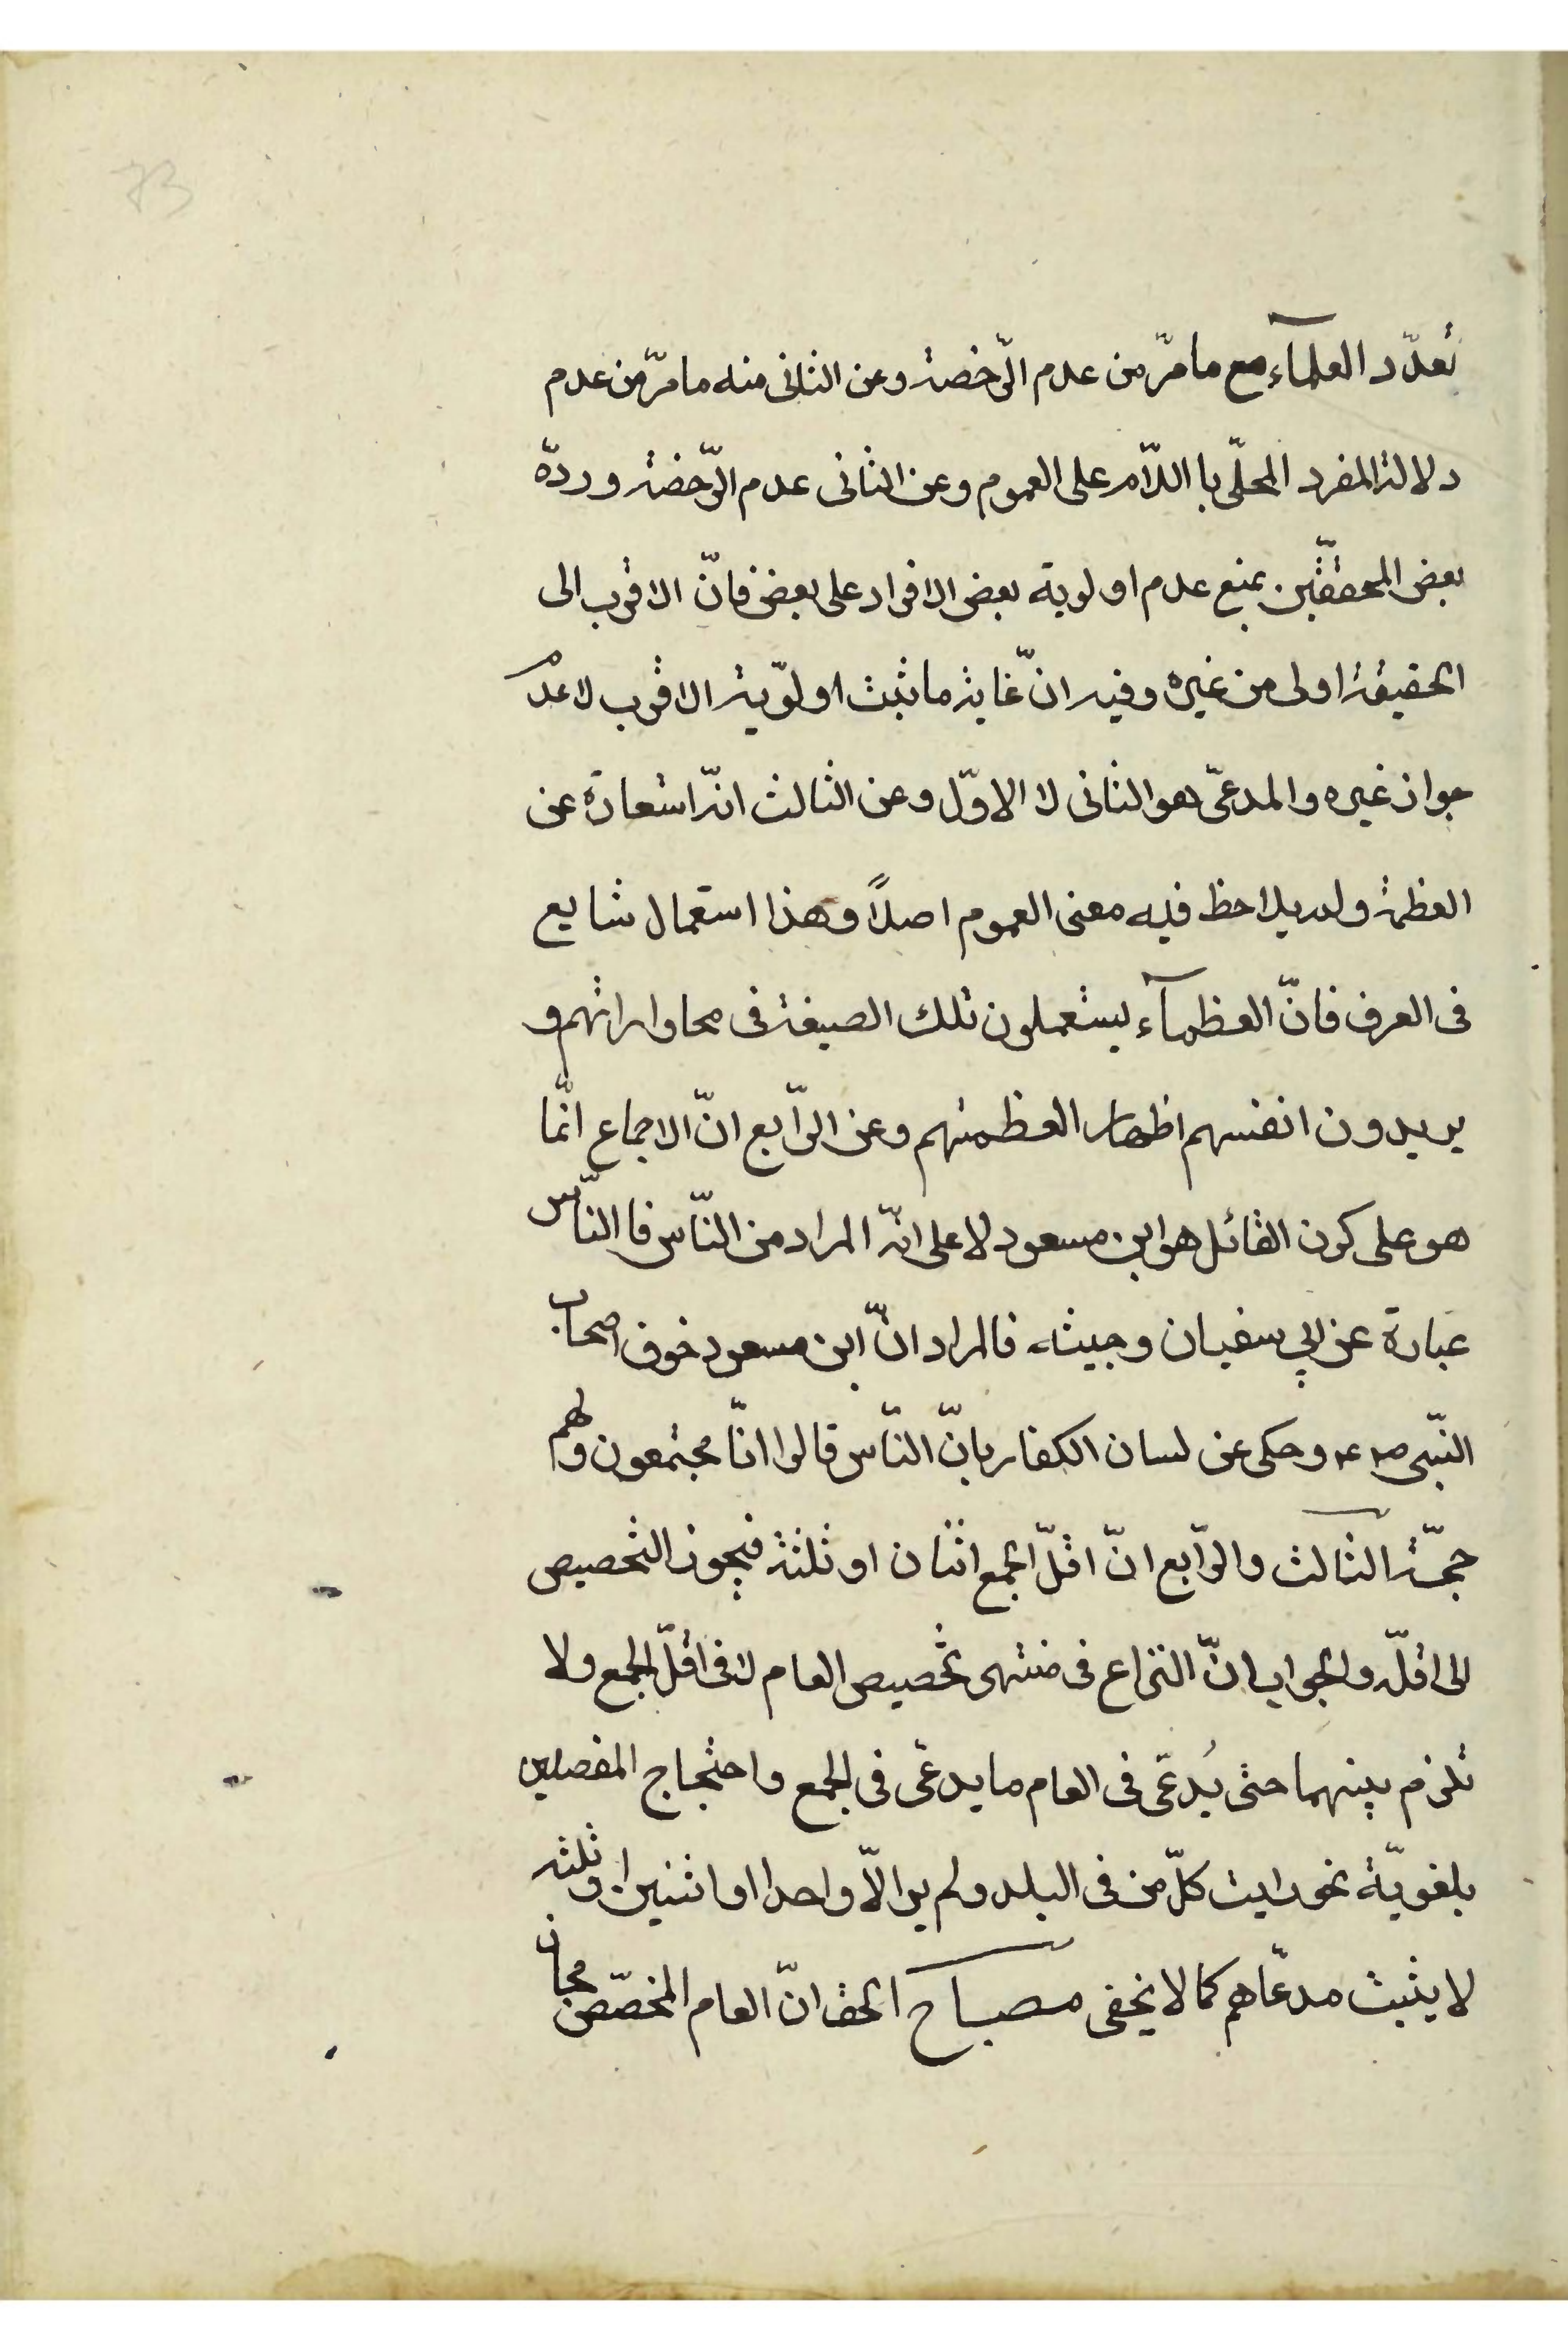 73
تعدّد العلمآء مع ما مرّ من عدم الرّخصة وعن الثانى منه ما مرّ من عدم
دلالة المفرد المحلّى با اللاّم على العموم وعن الثانى عدم الرّخصة وردّه
بعض المحققّين بمنع عدم اولوية بعض الافراد على بعض فانّ الاقرب الى
الحقيقة اولى من غيره وفيه انّ غاية ما يثبت اولوّية الاقرب لا عدم
جواز غيره والمدعىّ هو الثانى لا الاوّل وعن الثالث انّه استعارة عن
العظمة ولم يلاحظ فيه معنى العموم اصلاً وهذا استعمال شايع
فى العرف فانّ العظمآء يستعملون تلك الصيغة فى محاوراتهم و
يريدون انفسهم اظهار العظمتهم وعن الرّابع انّ الاجماع انّما
هو على كون القائل هو ابن مسعود لا على انّه المراد من النّاس فا النّاس
عبارة عن ابي سفيان وجيشه فالمراد انّ ابن مسعود خوف اصحاب
النّبى ص٤م وحكى عن لسان الكفار بانّ النّاس قالوا انّا مجتمعون ولهم
حجّة الثالث والرّابع انّ اقلّ الجمع اثنان او ثلثة فيجوز التخصيص
الى اقلّه والجواب انّ النزاع فى منتهى تخصيص العام لا فى اقلّ الجمع ولا
تلزم بينهما حتى يُدعّى فى العام ما يدعّى فى الجمع واحتجاج المفصلين
بلغويّة نحو رايت كلّ من فى البلد ولم ير الاّ واحدا او اثنين او ثلثه
لا يثبت مدعّاهم كما لا يخفى مصباح الحق انّ العام المخصّص مجاز